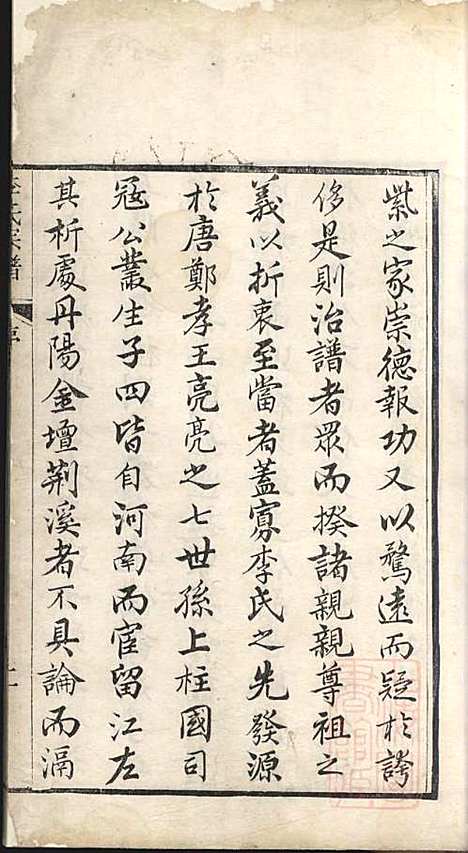 紫之家崇德報功又以騖遠而疑於誇
侈是則治譜者眾而揆諸親親尊祖之
義以折衷至當者蓋寡李氏之先發源
於唐鄭孝王亮亮之七世孫上柱國司
冦公叢生子四皆自河南而宦留江左
其析處丹陽金壇荆溪者不具論而滆
李氏宗譜